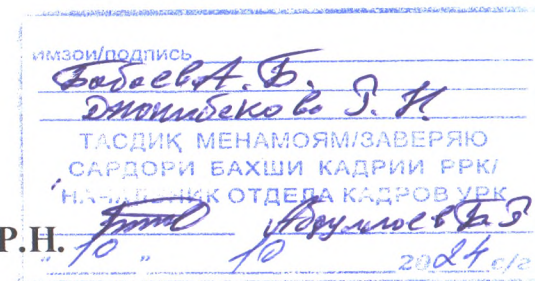 имзои/подпись
Бобоев А. Б.
Джонибекова Р. Н.
ТАСДИҚ МЕНАМОЯМ/ЗАВЕРЯЮ
САРДОРИ БАХШИ КАДРИИ РРК/
НАЧАЛЬНИК ОТДЕЛА КАДРОВ УРК
Абдуллоев Б.
Р.Н.
"10" 10 2024 с/г